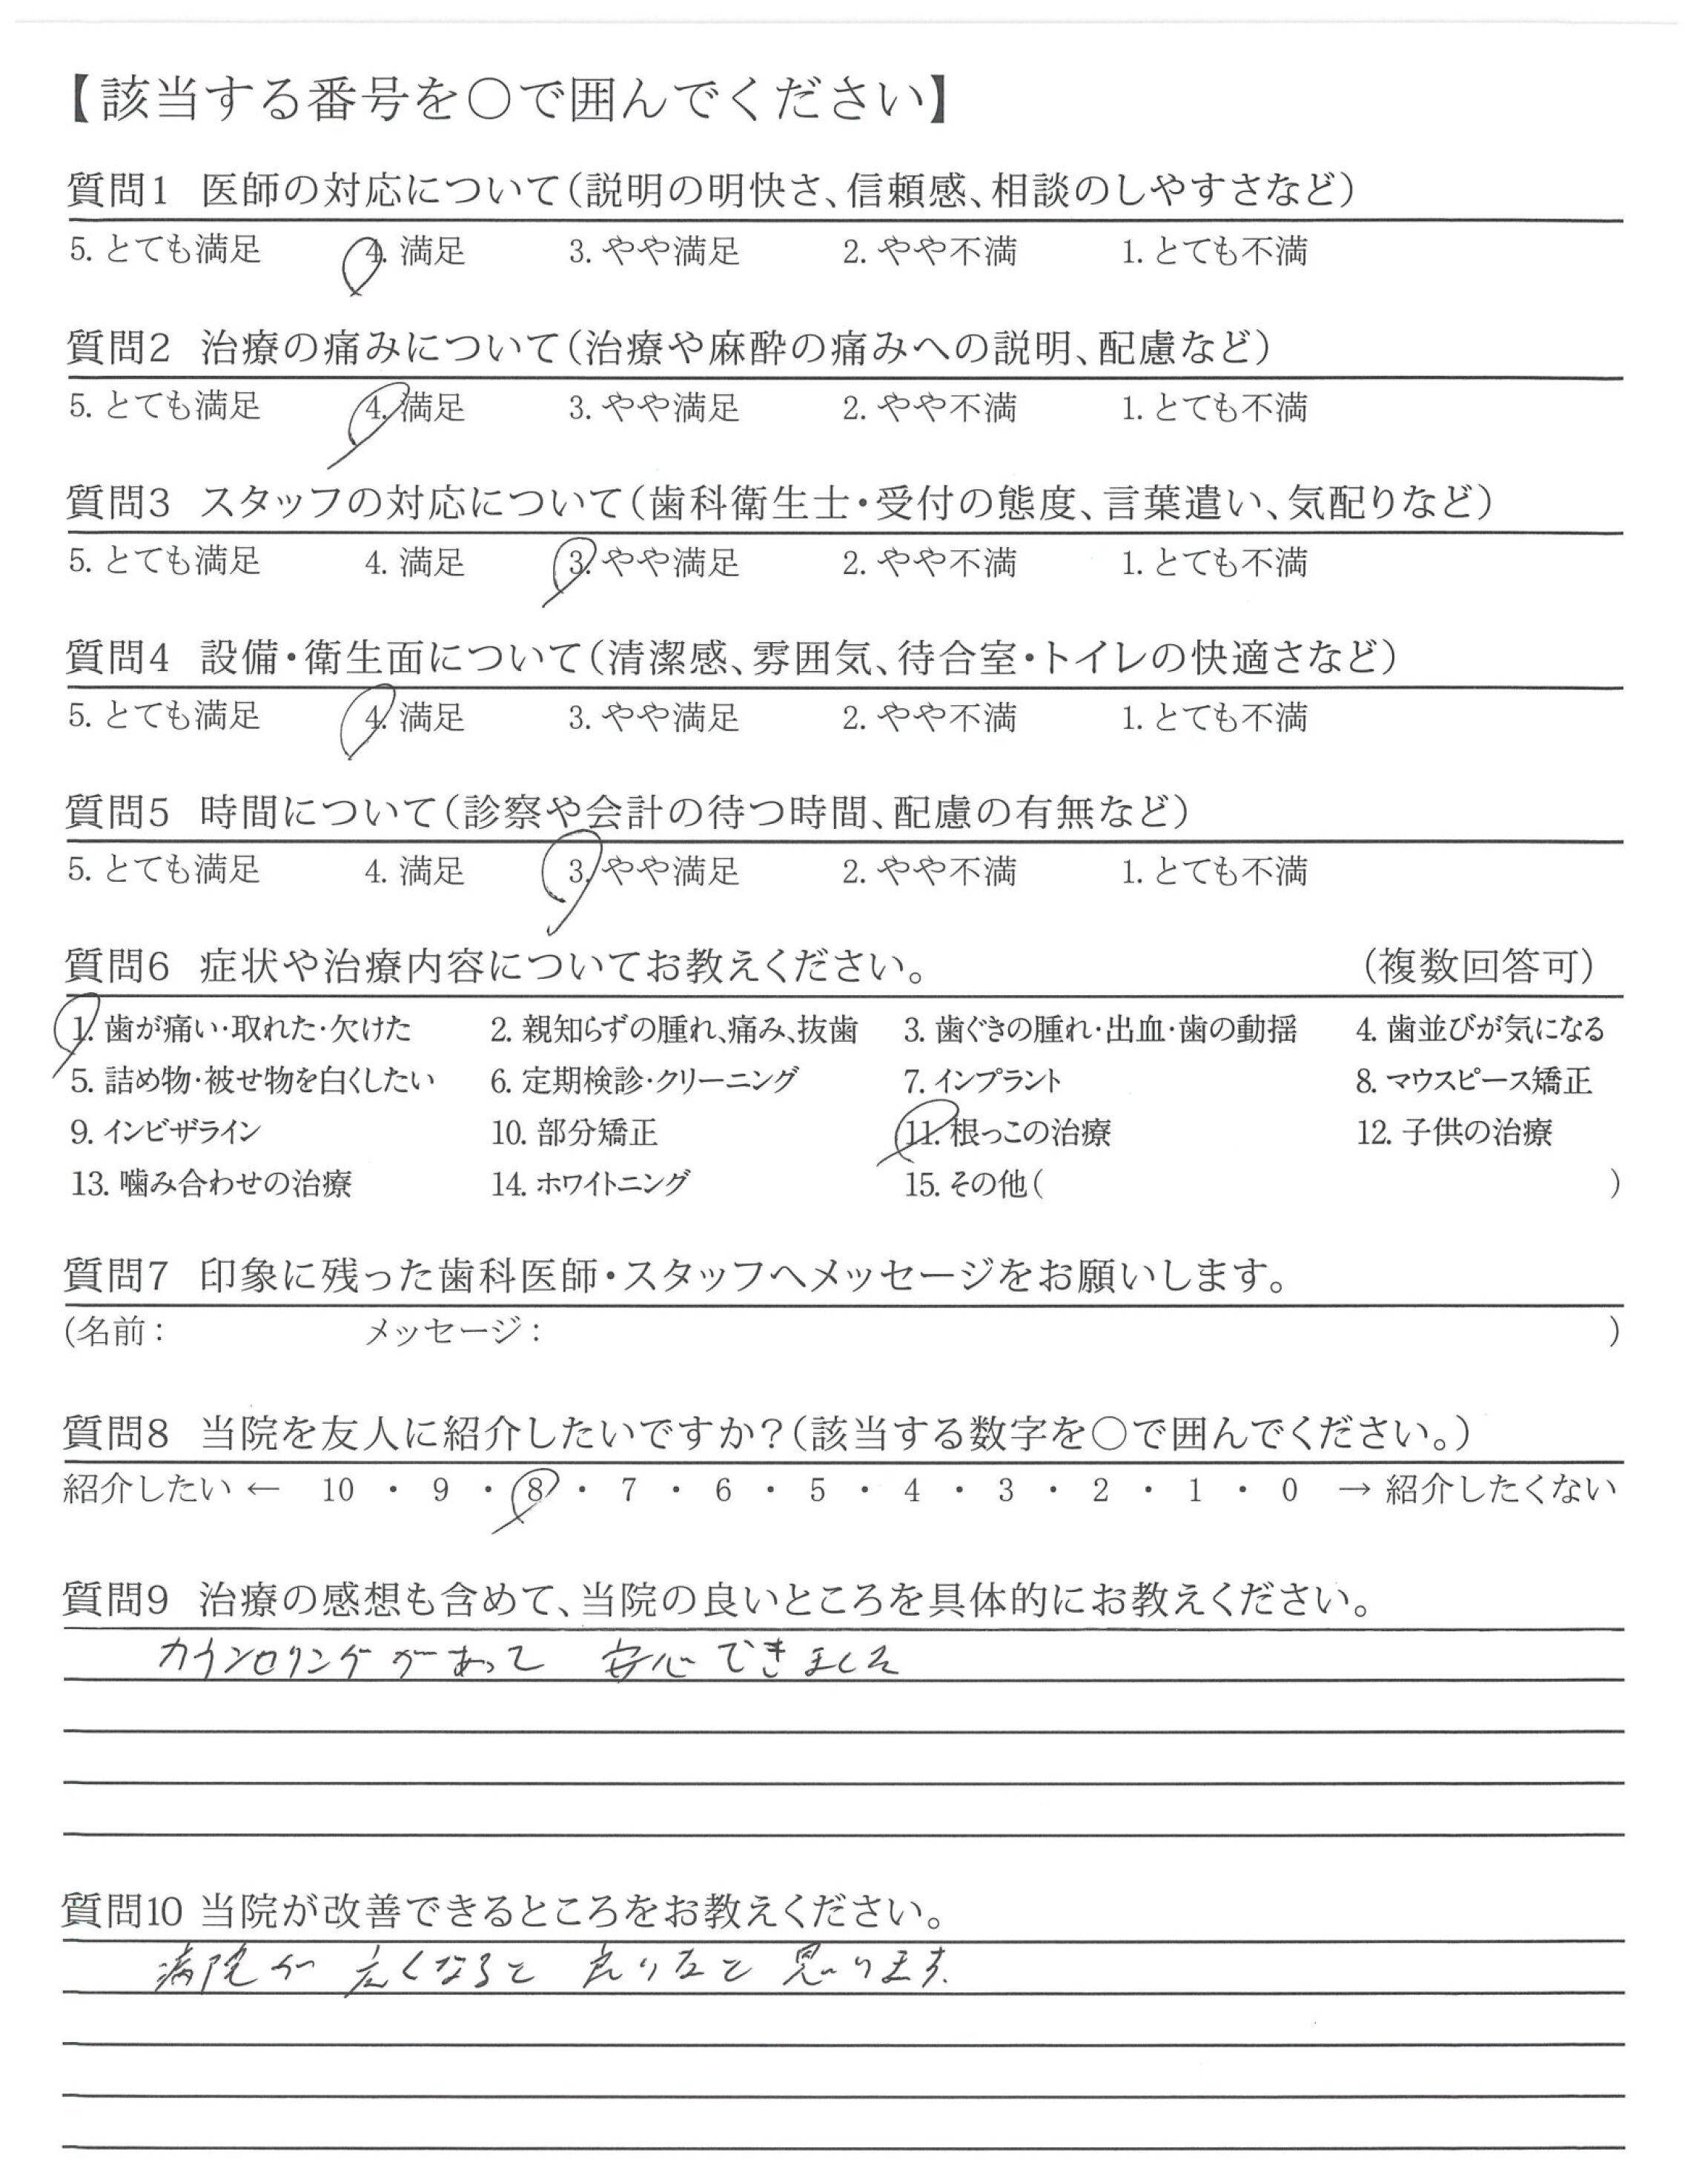 【該当する番号を〇で囲んでください】
質問1 医師の対応について(説明の明快さ、信頼感、相談のしやすさなど)
5. とても満足 4. 満足 3. やや満足 2. やや不満 1. とても不満
質問2 治療の痛みについて(治療や麻酔の痛みへの説明、配慮など)
5. とても満足 4. 満足 3. やや満足 2. やや不満 1. とても不満
質問3 スタッフの対応について(歯科衛生士・受付の態度、言葉遣い、気配りなど)
5. とても満足 4. 満足 3. やや満足 2. やや不満 1. とても不満
質問4 設備・衛生面について(清潔感、雰囲気、待合室・トイレの快適さなど)
5. とても満足 4. 満足 3. やや満足 2. やや不満 1. とても不満
質問5 時間について(診察や会計の待つ時間、配慮の有無など)
5. とても満足 4. 満足 3. やや満足 2. やや不満 1. とても不満
質問6 症状や治療内容についてお教えください。 (複数回答可)
1. 歯が痛い・取れた・欠けた 2. 親知らずの腫れ、痛み、抜歯 3. 歯ぐきの腫れ・出血・歯の動揺 4. 歯並びが気になる
5. 詰め物・被せ物を白くしたい 6. 定期検診・クリーニング 7. インプラント 8. マウスピース矯正
9. インビザライン 10. 部分矯正 11. 根っこの治療 12. 子供の治療
13. 噛み合わせの治療 14. ホワイトニング 15. その他( )
質問7 印象に残った歯科医師・スタッフへメッセージをお願いします。
(名前: メッセージ: )
質問8 当院を友人に紹介したいですか?(該当する数字を〇で囲んでください。)
紹介したい ← 10 ・ 9 ・ 8 ・ 7 ・ 6 ・ 5 ・ 4 ・ 3 ・ 2 ・ 1 ・ 0 → 紹介したくない
質問9 治療の感想も含めて、当院の良いところを具体的にお教えください。
カウンセリングがあって 安心できました
質問10 当院が改善できるところをお教えください。
病院が 広くなると 良いなと 思います.